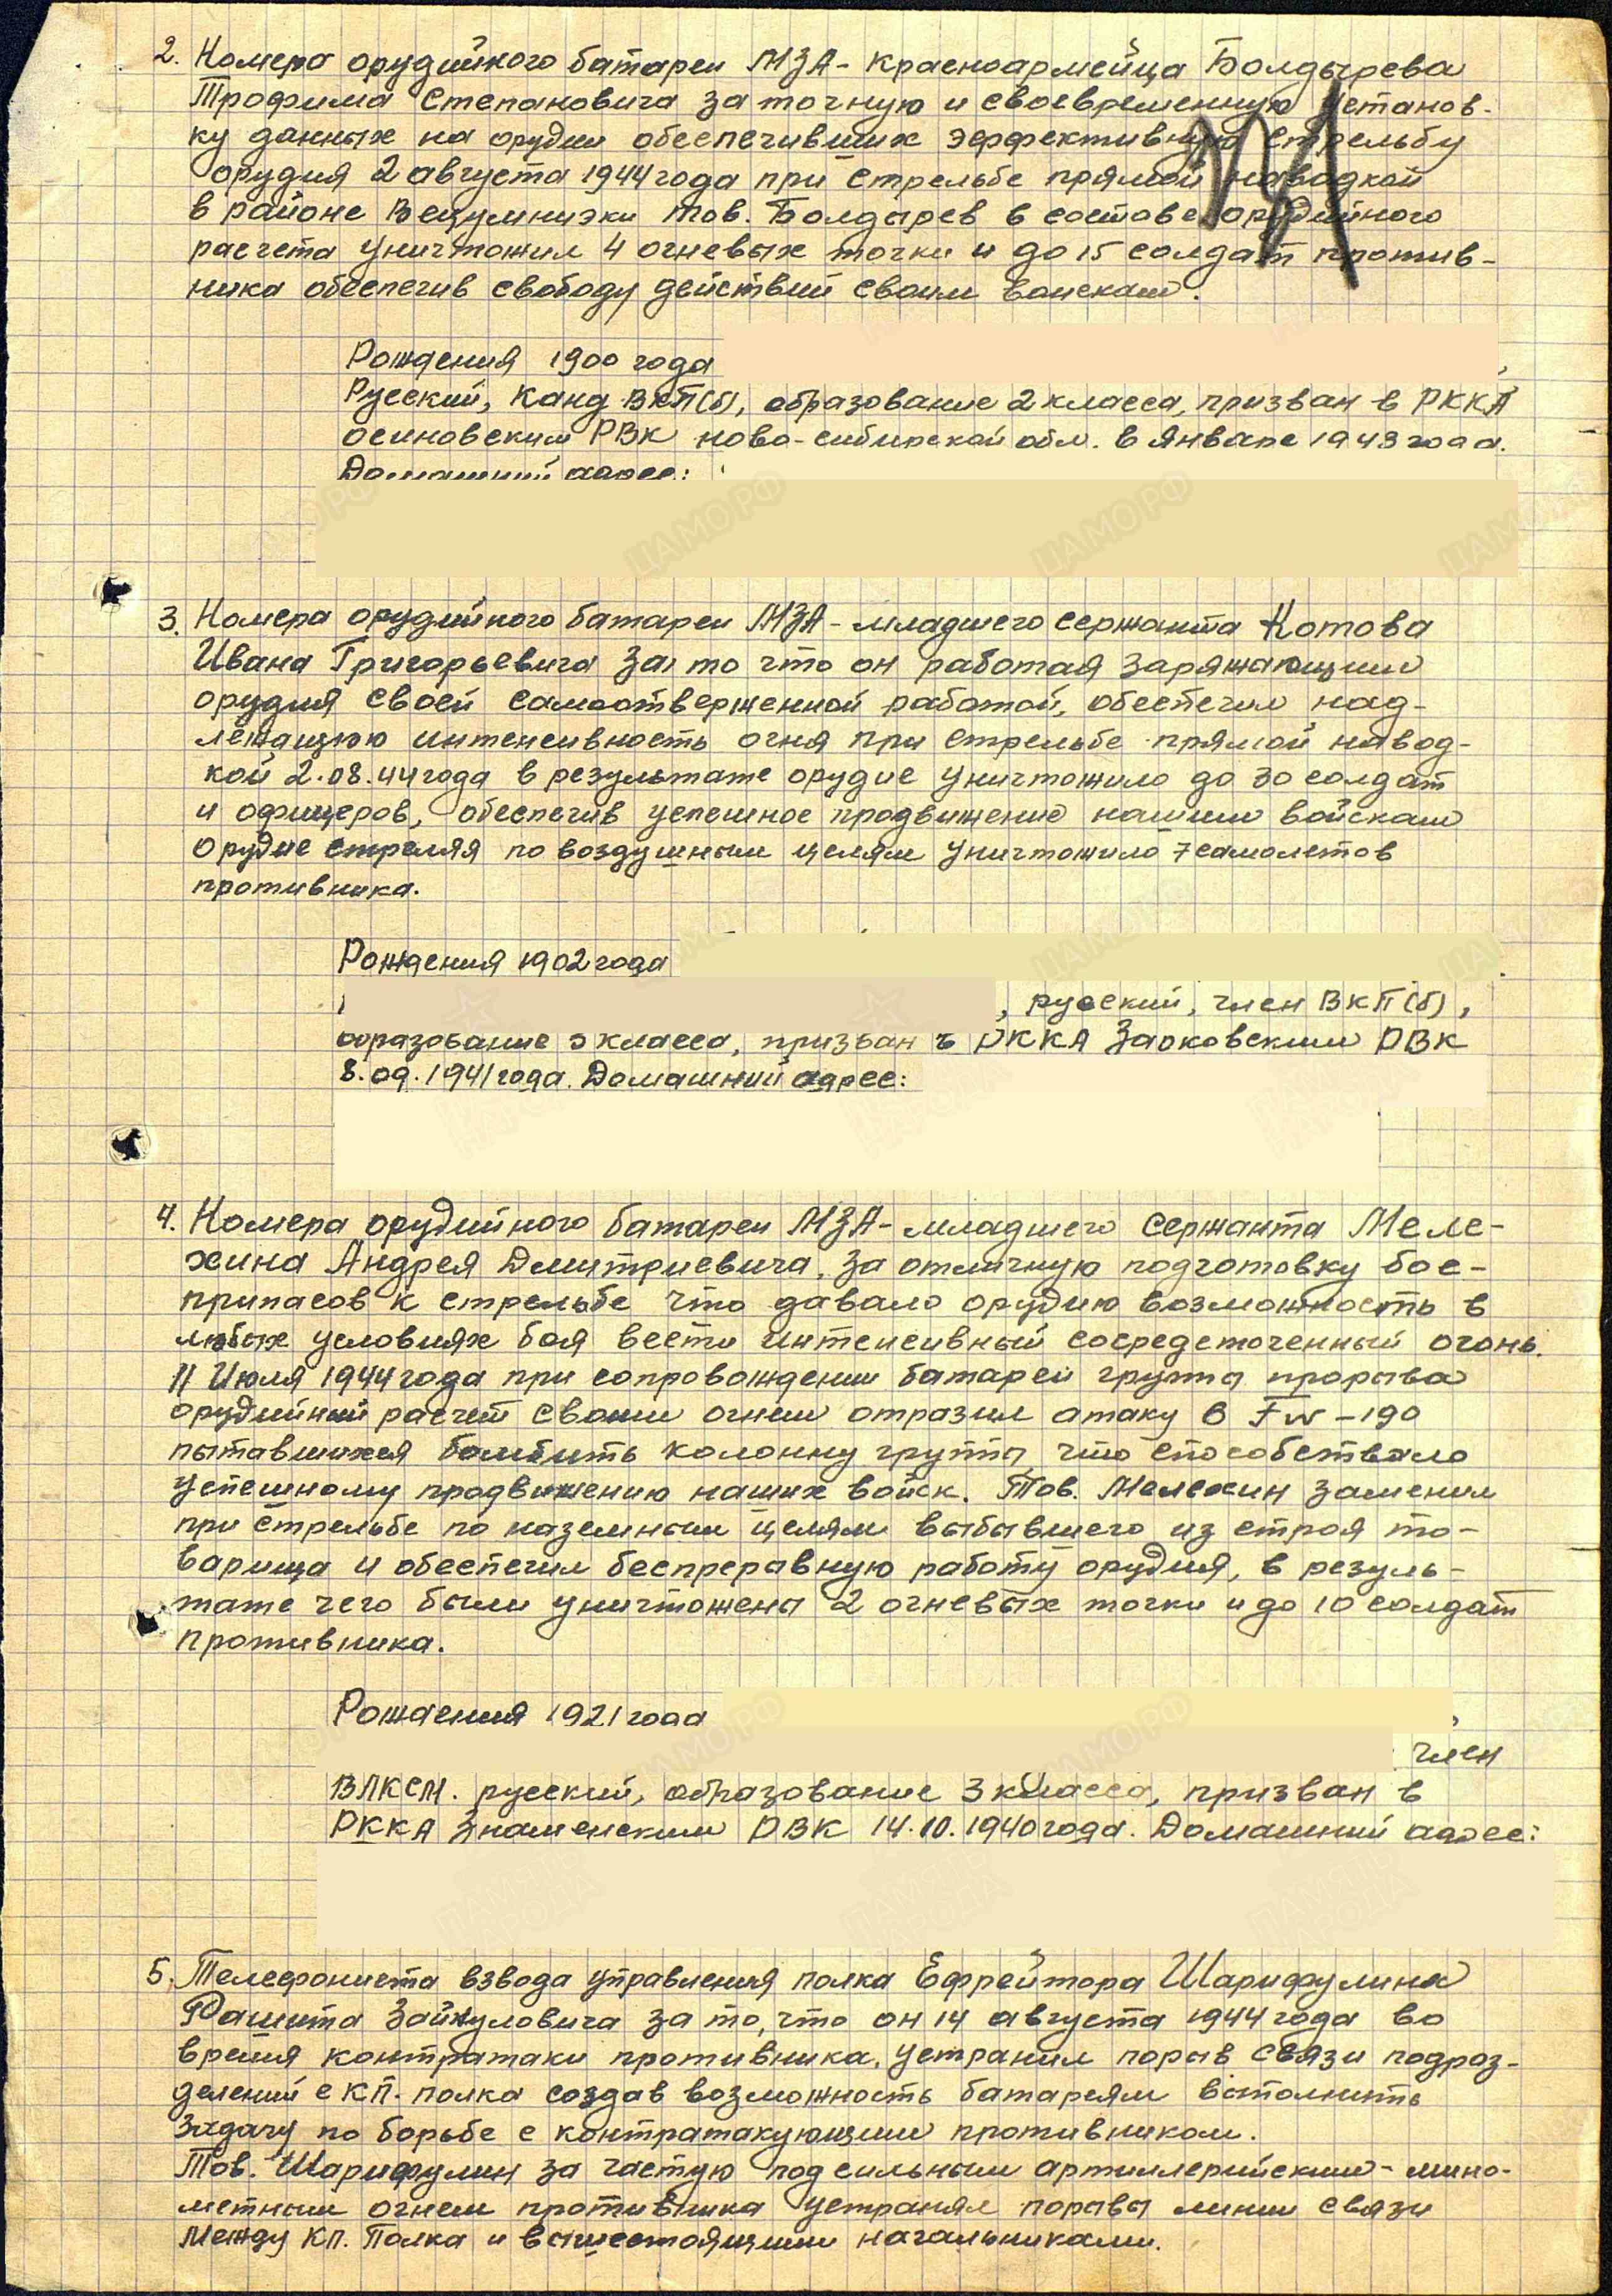 2. Номера орудийного батареи МЗА - красноармейца Болдырева
Трофима Степановича за точную и своевременную установ-
ку данных на орудии обеспечивших эффективную стрельбу
орудия 2 августа 1944 года при стрельбе прямой наводкой
в районе Вецумниэки тов. Болдырев в составе орудийного
расчета уничтожил 4 огневых точки и до 15 солдат против-
ника обеспечив свободу действий своим войскам.
Рождения 1900 года
Русский, Канд ВКП(б), образование 2 класса, призван в РККА
Осиновским РВК ново-сибирской обл. в Январе 1943 года.
Домашний адрес:
3. Номера орудийного батареи МЗА - младшего сержанта Котова
Ивана Григорьевича за то что он работая заряжающим
орудия своей самоотверженной работой, обеспечил над-
лежащую интенсивность огня при стрельбе прямой навод-
кой 2.08.44 года в результате орудие уничтожило до 30 солдат
и офицеров, обеспечив успешное продвижение нашим войскам
Орудие стреляя по воздушным целям уничтожило 7 самолетов
противника.
Рождения 1902 года
, русский, член ВКП(б),
образование 3 класса, призван в РККА Зарковским РВК
8.09.1941 года. Домашний адрес:
4. Номера орудийного батареи МЗА - младшего сержанта Меле-
хина Андрея Дмитриевича, за отличную подготовку бое-
припасов к стрельбе что давало орудию возможность в
любых условиях боя вести интенсивный сосредоточенный огонь.
11 Июля 1944 года при сопровождении батареи группы прорыва
орудийный расчет своим огнем отразил атаку 6 Fw-190
пытавшихся бомбить колонну группы, что способствовало
успешному продвижению наших войск. Тов. Мелехин заменил
при стрельбе по наземным целям выбывшего из строя то-
варища и обеспечил беспреравную работу орудия, в резуль-
тате чего были уничтожены 2 огневых точки и до 10 солдат
противника.
Рождения 1921 года
член
ВЛКСМ. русский, образование 3 класса, призван в
РККА Знаменским РВК 14.10.1940 года. Домашний адрес:
5. Телефониста взвода управления полка Ефрейтора Шарифулина
Рашита Зайнуловича за то, что он 14 августа 1944 года во
время контратаки противника, устранил порыв связи подраз-
делений с КП. полка создав возможность батареям выполнить
задачу по борьбе с контратакующим противником.
Тов. Шарифулин за частую под сильным артиллерийским - мино-
метным огнем противника устранял порывы линии связи
Между КП. Полка и вышестоящими начальниками.